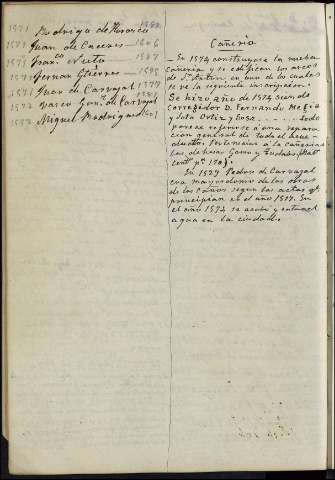 1571 Rodrigo de Horozco
1571 Juan de Caceres — 1606
1571 Franco. Nieto — 1587
1571 Hernan Gtierres — 1595
1571 Juan de Carvajal — 1577
1572 Vasco Gon. de Carvajal
1572 Miguel Madrigano
Cañeria
— En 1574 construyese la nueva
Cañeria y se edifican los arcos
de Sn. Anton en uno de los cuales
se ve la siguiente inscripcion:
Se hizo año de 1574 siendo
Corregidor D. Fernando Megia
y Sota Ortiz y Sosa. ... Todo
parece referirse a una repara-
cion general de todo el acue-
ducto.
En 1529 Pedro de Carvajal
era mayordomo de las obras
de los Caños segun las actas qe.
principian en el año 1517. En
el año 1573 se acabó y entra el
agua en la ciudad.